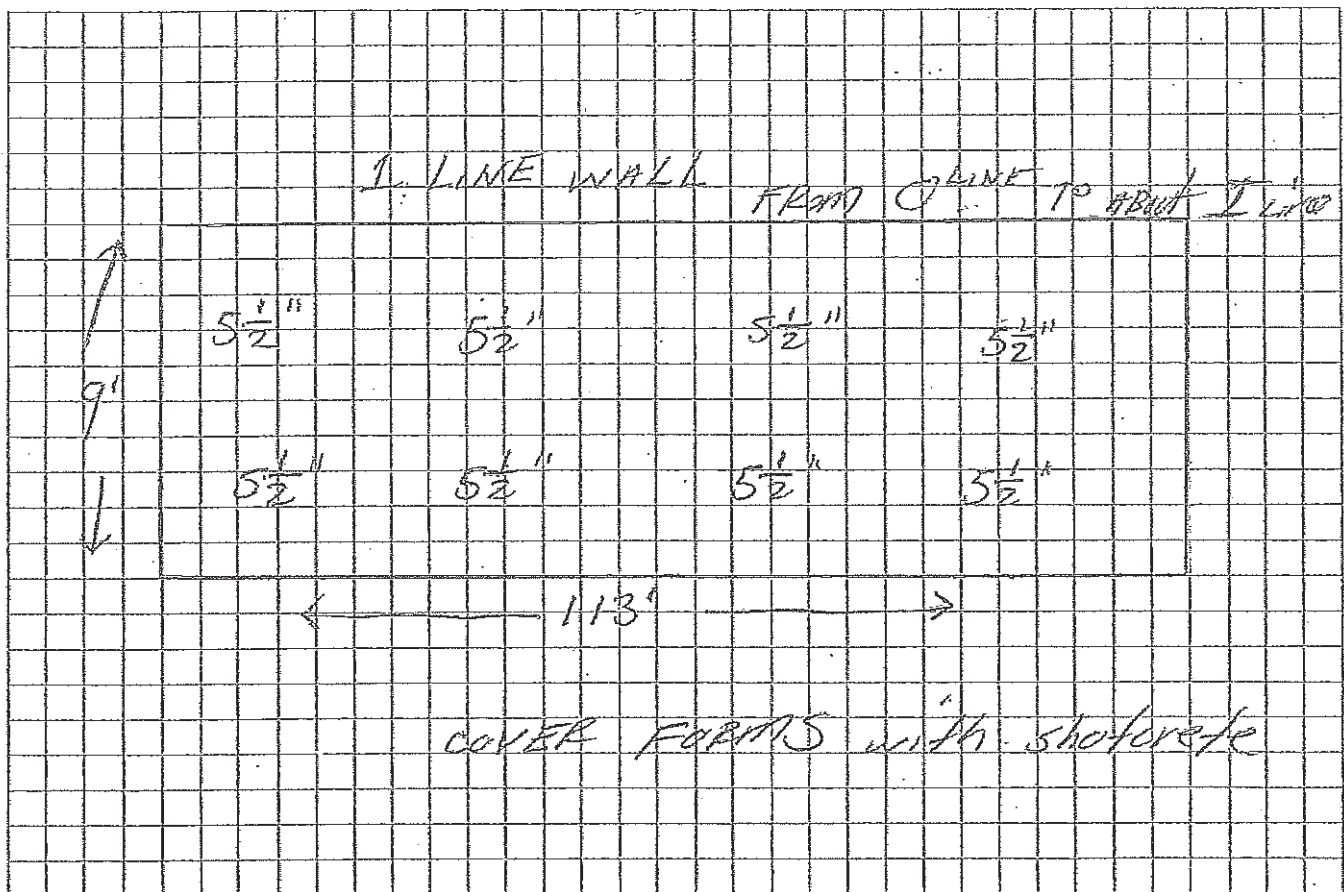 1. LINE WALL FROM O LINE TO ABout I Line
5 1/2" 5 1/2" 5 1/2" 5 1/2"
9'
5 1/2" 5 1/2" 5 1/2" 5 1/2"
113'
COVER FORMS with shotcrete